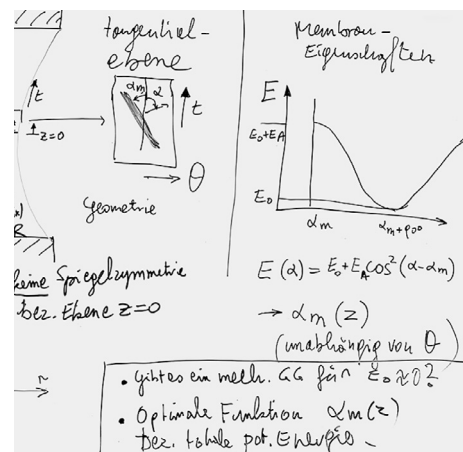 tangential-
ebene
αm α
t
t
z=0
θ
Geometrie
keine Spiegelsymmetrie
bez. Ebene z=0
r
Membran-
Eigenschaften
E
E₀+E_A
E₀
αm
αm+90°
E(α) = E₀+E_A cos²(α-αm)
→ αm(z)
(unabhängig von θ)
• gibt es ein mech. GG für E₀≈0?
• Optimale Funktion αm(z)
bez. totale pot. Energie